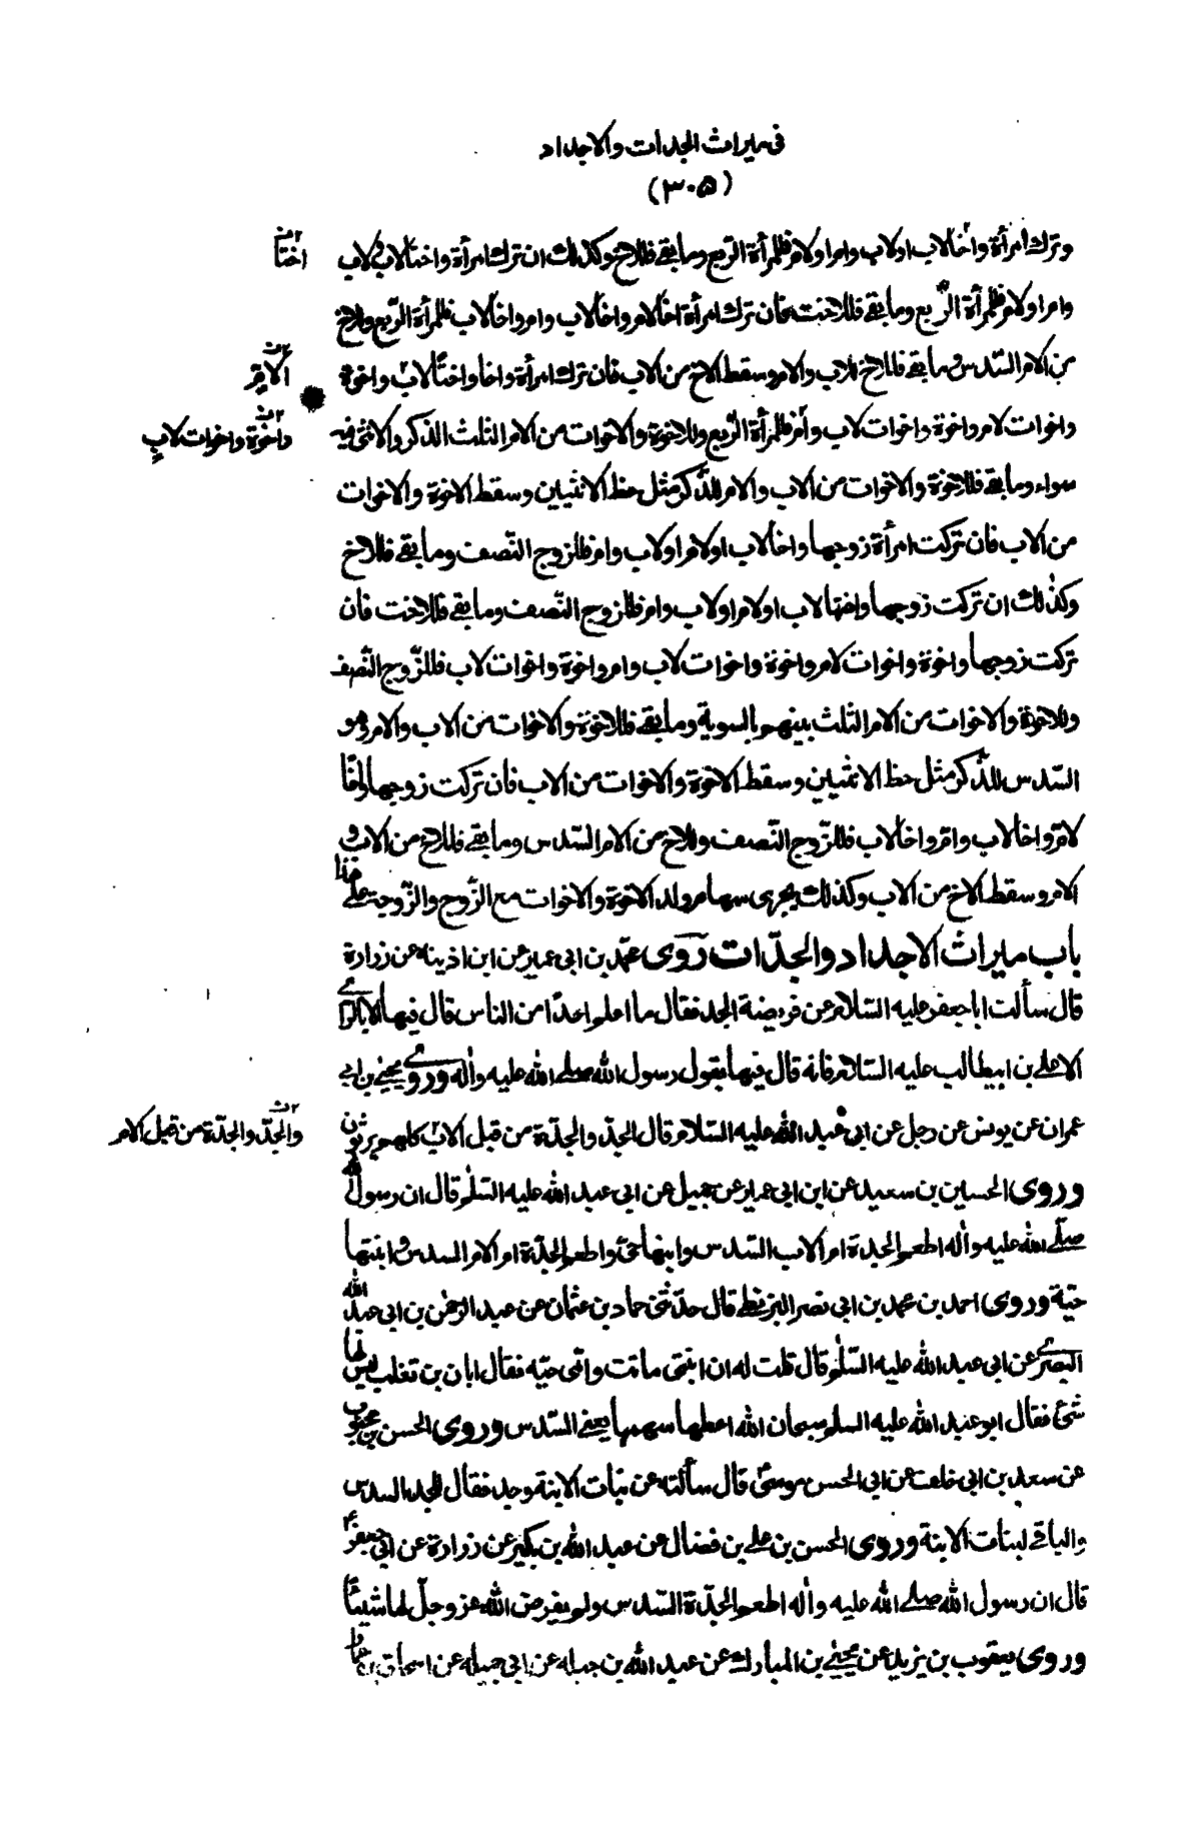 فى ميراث الجدات والاجداد
(٣٠٥)
وترك امرأة واخا لاب او لاب وام او لام فللمرأة الربع وما بقى فللاخ وكذلك ان ترك امرأة واختا لاب او لاب
اختا
وام او لام فللمرأة الربع وما بقى فللاخت فان ترك امرأة اخا لام واخا لاب وام واخا لاب فللمرأة الربع وللاخ
من الام السدس وما بقى فللاخ للاب والام وسقط الاخ من الاب فان ترك امرأة واخا واختا لاب واخوة
واخوات لام واخوة واخوات لاب وام فللمرأة الربع وللاخوة والاخوات من الام الثلث الذكر والانثى فيه
واخوة واخوات لاب
سواء وما بقى فللاخوة والاخوات من الاب والام للذكر مثل حظ الانثيين وسقط الاخوة والاخوات
من الاب فان تركت امرأة زوجها واخا لاب او لام او لاب وام فللزوج النصف وما بقى فللاخ
وكذلك ان تركت زوجها واختها لاب او لام او لاب وام فللزوج النصف وما بقى فللاخت فان
تركت زوجها واخوة واخوات لام واخوة واخوات لاب وام واخوة واخوات لاب فللزوج النصف
وللاخوة والاخوات من الام الثلث بينهم بالسوية وما بقى فللاخوة والاخوات من الاب والام وهو
السدس للذكر مثل حظ الانثيين وسقط الاخوة والاخوات من الاب فان تركت زوجها واخا
لام واخا لاب وام واخا لاب فللزوج النصف وللاخ من الام السدس وما بقى فللاخ من الاب و
الام وسقط الاخ من الاب وكذلك يجرى سهام ولد الاخوة والاخوات مع الزوج والزوجة على هذا
باب ميراث الاجداد والجدّات روى محمد بن ابى عمير عن ابن اذينه عن زرارة
قال سألت ابا جعفر عليه السلام عن فريضة الجد فقال ما اعلم احدا من الناس قال فيها الا بالراى
الا على بن ابيطالب عليه السلام فانه قال فيها بقول رسول الله صلى الله عليه واله وروى يحيى بن ابى
عمران عن يونس عن رجل عن ابى عبد الله عليه السلام قال الجد والجدة من قبل الاب كلهم يرثون
والجدّ والجدّة من قبل الام
وروى الحسين بن سعيد عن ابن ابى عمير عن جميل عن ابى عبد الله عليه السلم قال ان رسول الله
صلى الله عليه واله اطعم الجدة ام الاب السدس وابنها حى واطعم الجدّة ام الام السدس وابنتها
حيّة وروى احمد بن محمد بن ابى نصر البزنطى قال حدّثنى حماد بن عثمان عن عبد الرحمن بن ابى عبد الله
البصرى عن ابى عبد الله عليه السلم قال قلت له ان ابنتى ماتت وامى حيّه فقال ابان بن تغلب ليس لها
شئ فقال ابو عبد الله عليه السلم سبحان الله اعطها سهمها يعنى السدس وروى الحسن بن محبوب
عن سعد بن ابى خلف عن ابى الحسن موسى قال سألته عن بنات الابنة وجد فقال للجد السدس
والباقى لبنات الابنة وروى الحسن بن على بن فضال عن عبد الله بن بكير عن زرارة عن ابى جعفر
قال ان رسول الله صلى الله عليه واله اطعم الجدّة السدس ولم يفرض الله عز وجلّ لها شيئا
وروى يعقوب بن يزيد عن يحيى بن المبارك عن عبد الله بن جبله عن ابى جميله عن اسحاق بن عمار